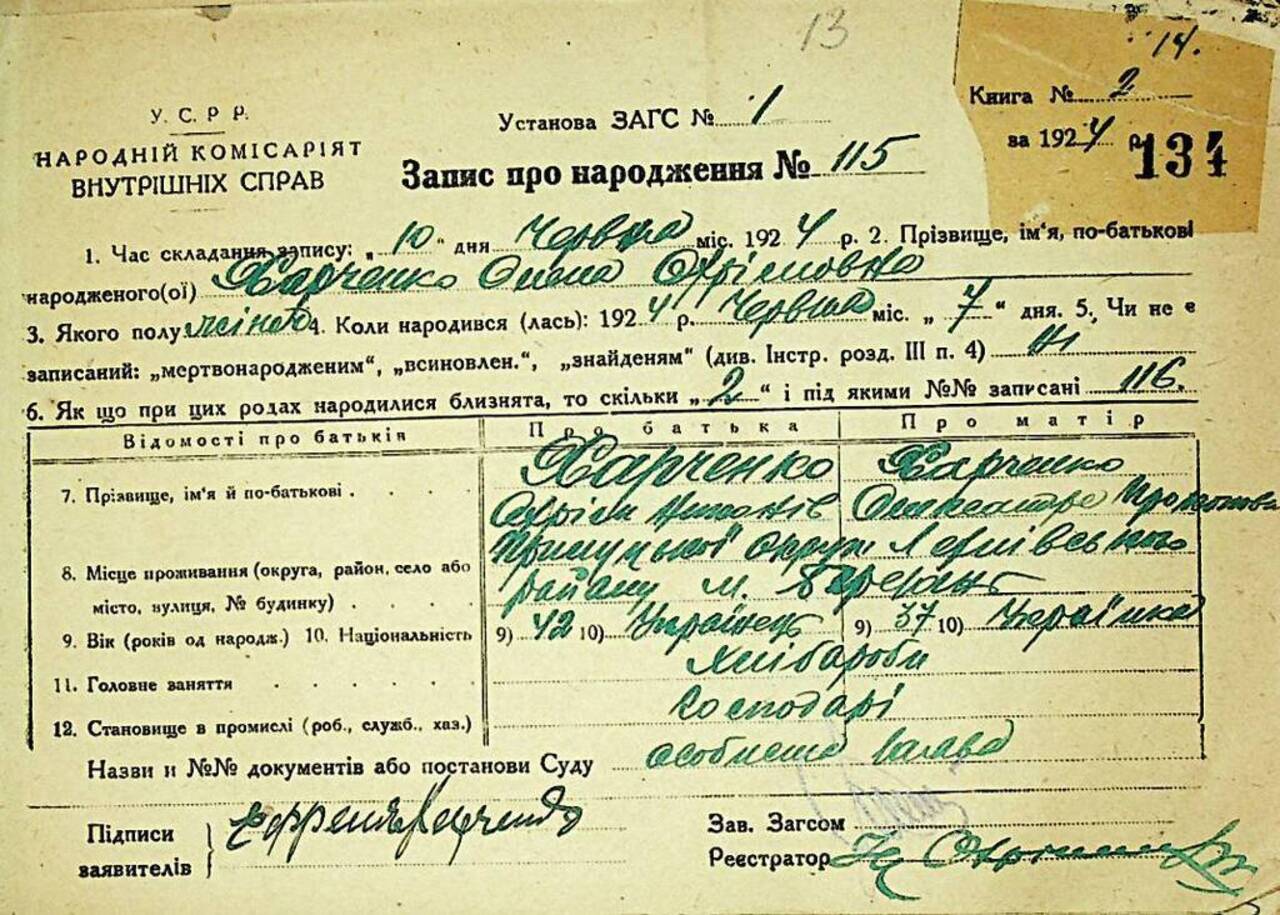 13
14.
У. С. Р Р.
НАРОДНІЙ КОМІСАРІЯТ
ВНУТРІШНІХ СПРАВ
Установа ЗАГС № 1
Запис про народження № 115
Книга № 2
за 1924 р.
134
1. Час складання запису: „ 10 “ дня Червня міс. 1924 р. 2. Прізвище, ім'я, по-батькові
народженого(ої) Харченко Олена Охрімовна
3. Якого полу жіноч. 4. Коли народився (лась): 1924 р. Червня міс. „ 7 “ дня. 5. Чи не є
записаний: „мертвонародженим“, „всиновлен.“, „знайденям“ (див. Інстр. розд. III п. 4) Ні
6. Як що при цих родах народилися близнята, то скільки „ 2 “ і під якими №№ записані 116.
Відомості про батьків Про батька Про матір
7. Прізвище, ім'я й по-батькові Харченко Харченко
Охрім
8. Місце проживання (округа, район, село або Прилуцької округи
місто, вулиця, № будинку) району м. Березань
9. Вік (років од народж.) 10. Національність 9) 42 10) Українець 9) 37 10) Українка
11. Головне заняття Хлібороби
12. Становище в промислі (роб., служб., хаз.) Господарі
Назви и №№ документів або постанови Суду особиста заява
Підписи
заявителів
Зав. Загсом
Реєстратор